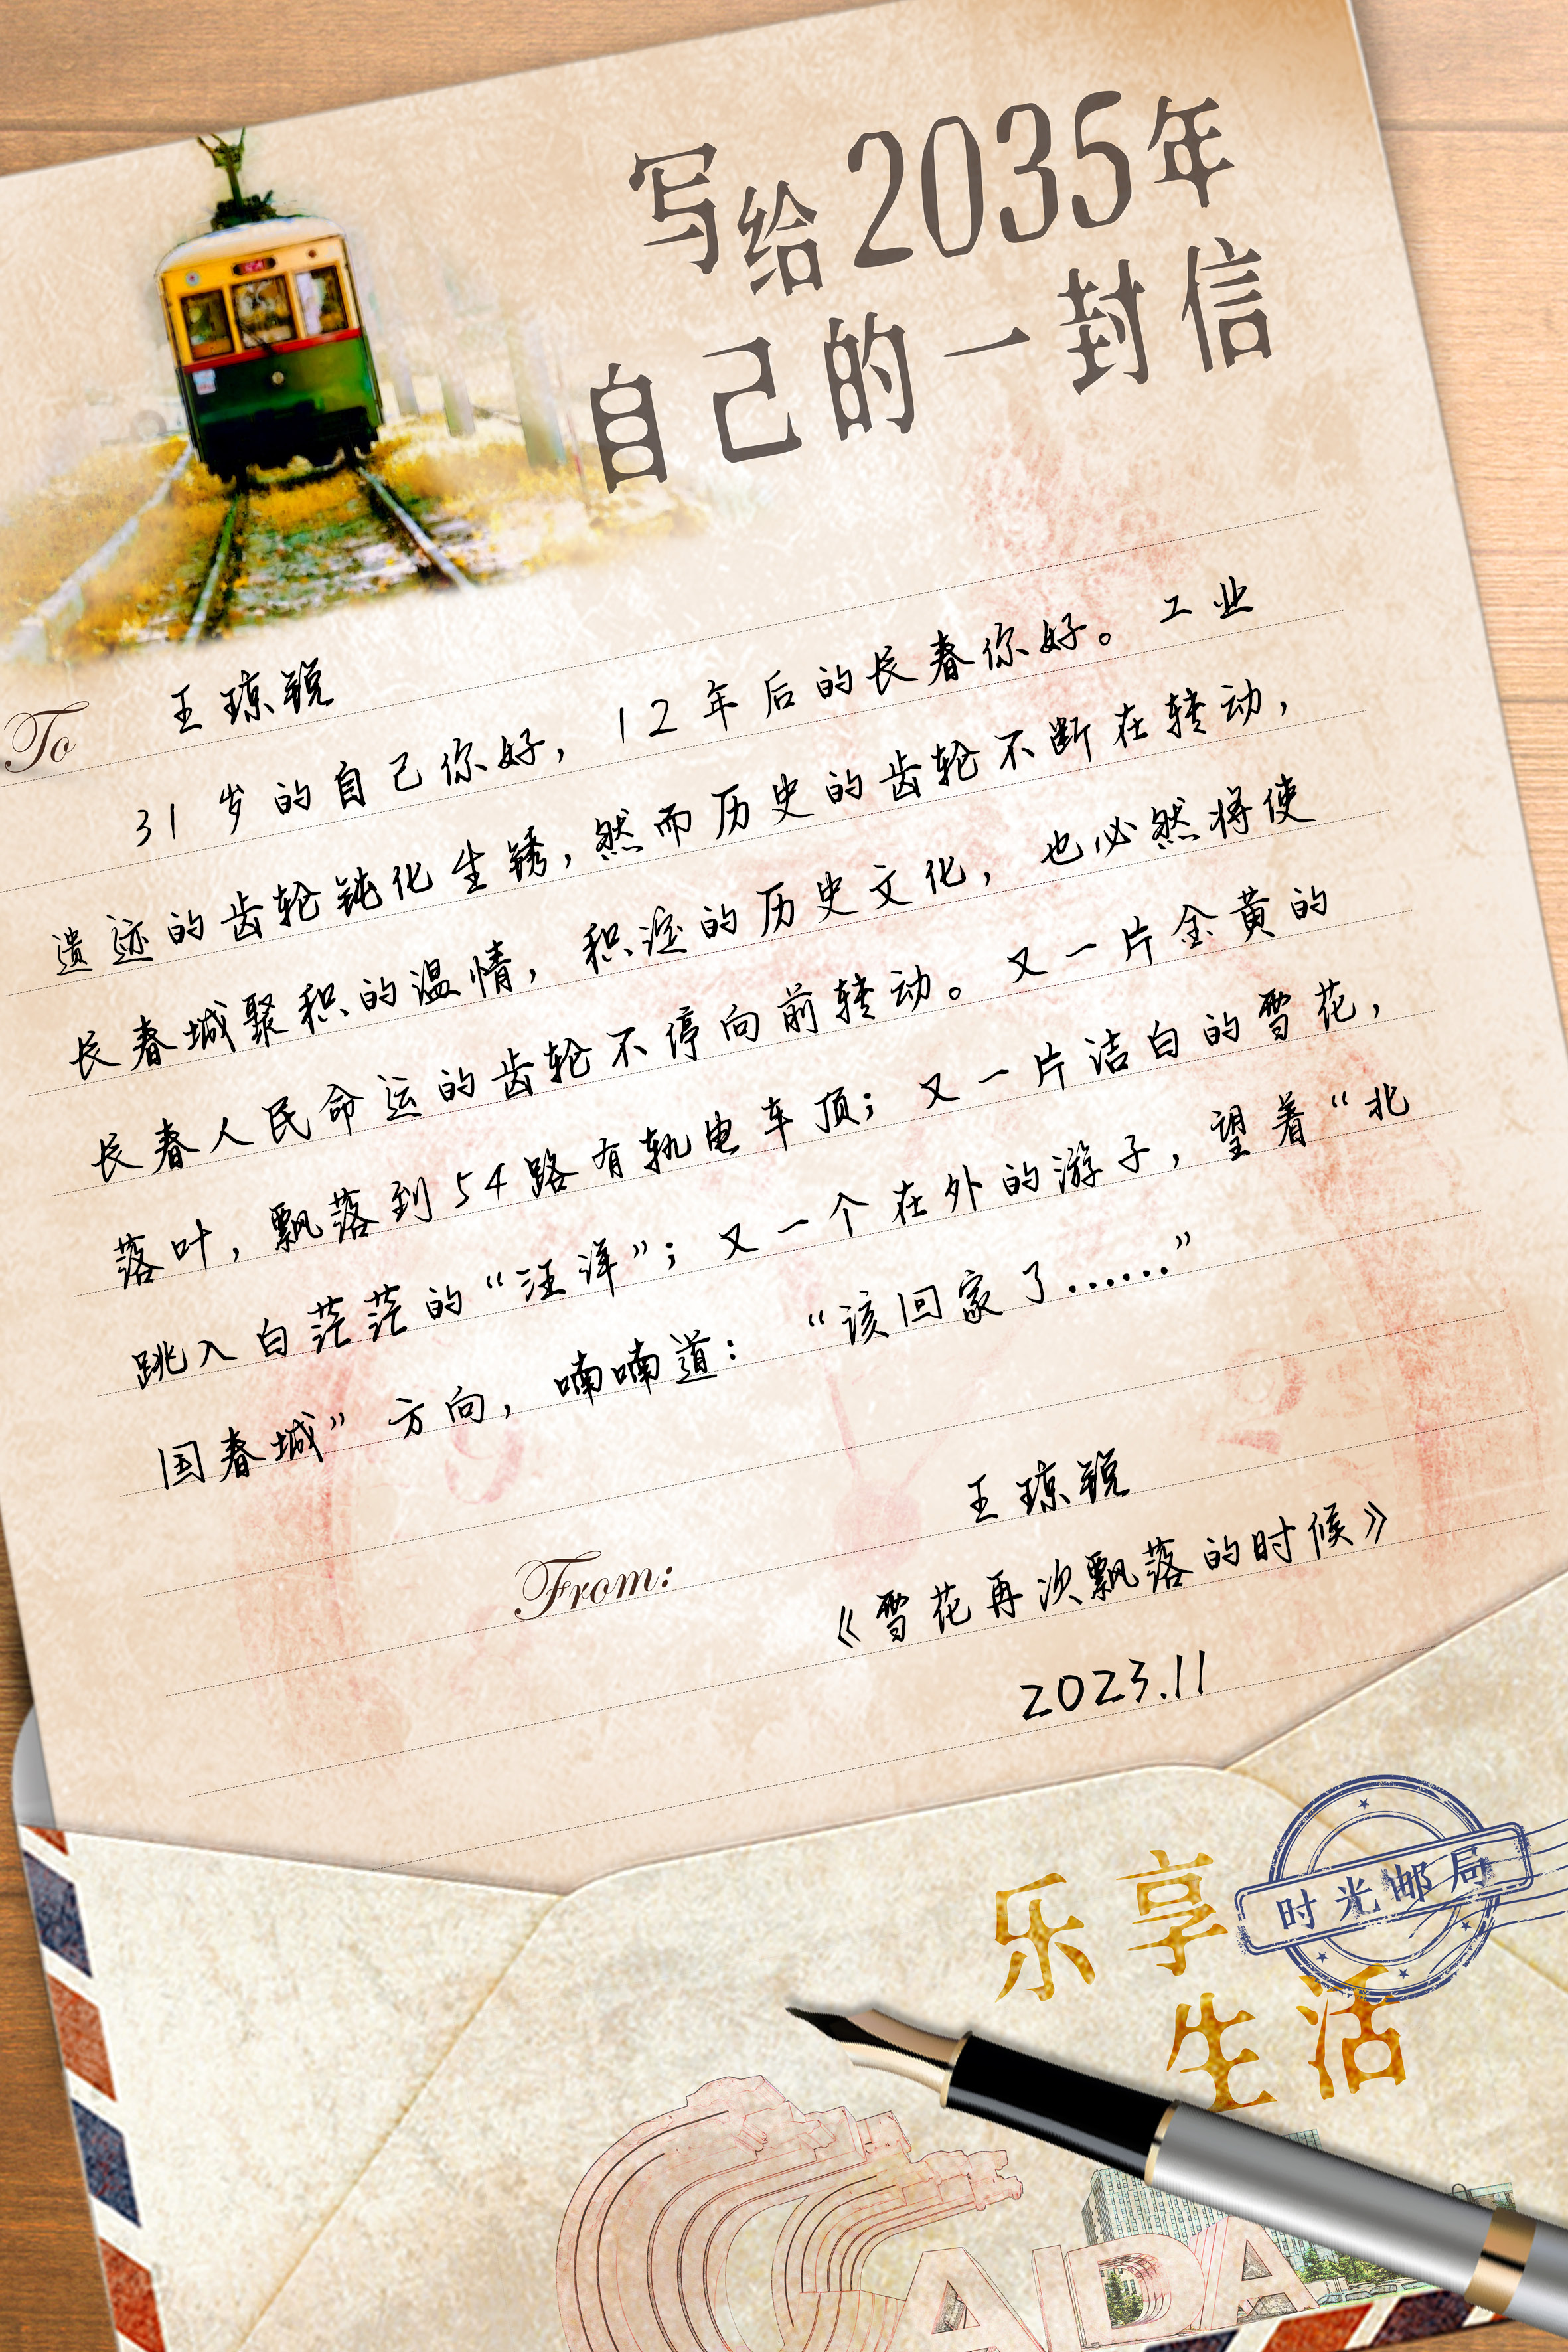 写给2035年
自己的一封信
To 王琼锐
31岁的自己你好，12年后的长春你好。工业
遗迹的齿轮钝化生锈，然而历史的齿轮不断在转动，
长春城聚积的温情，积淀的历史文化，也必然将使
长春人民命运的齿轮不停向前转动。又一片金黄的
落叶，飘落到54路有轨电车顶；又一片洁白的雪花，
跳入白茫茫的“汪洋”；又一个在外的游子，望着“北
国春城”方向，喃喃道：“该回家了......”
From: 王琼锐
《雪花再次飘落的时候》
2023.11
时光邮局
乐享
生活
CAIDA